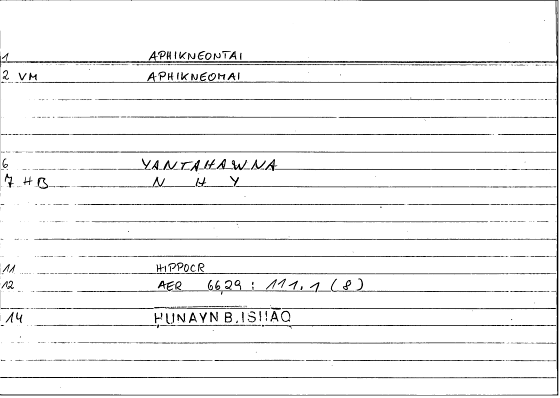 1 APHIKNEONTAI
2 VM APHIKNEOMAI
6 YANTAHAWNA
7 HB N H Y
11 HIPPOCR
12 AER 66,29 : 111.1 (8)
14 HUNAYN B. ISHAQ